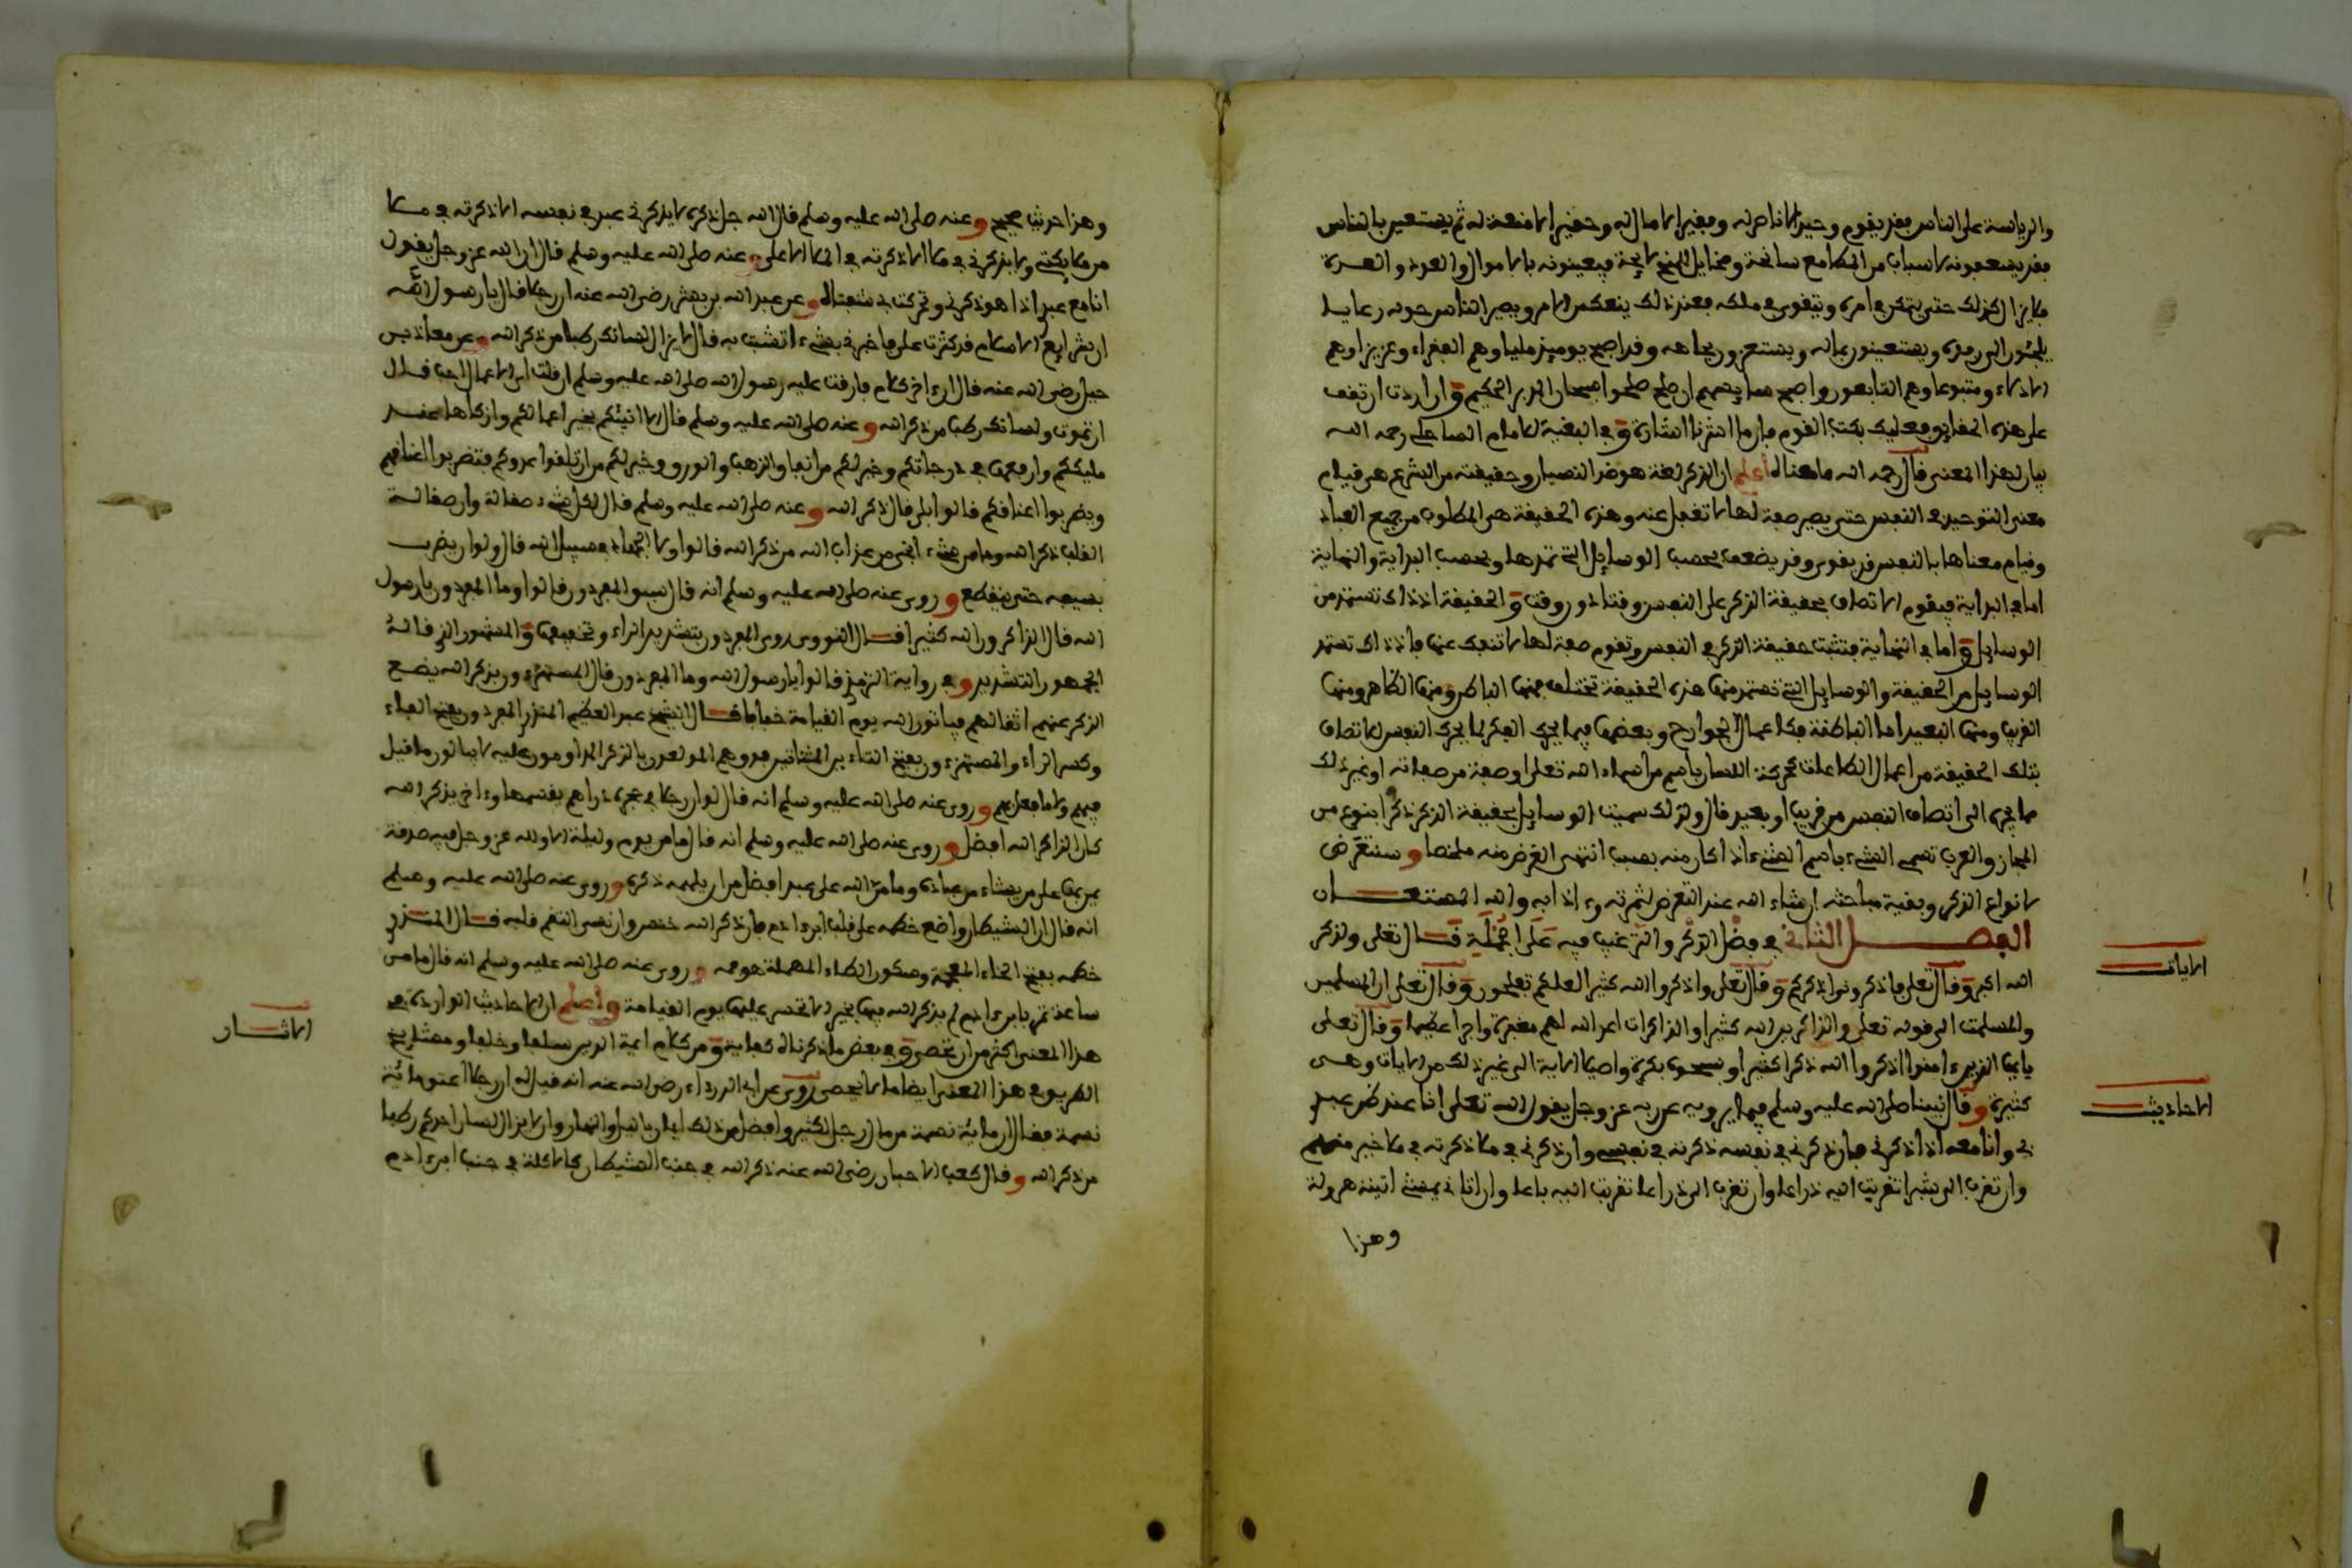 والرياسة على الناس بعد يقوم وحيدا لا ناصر له وفقيرا لا مال له وحقيرا لا منعة له ثم يستعين بالناس
فقد يسعفونه لاسباب من المطامع سانحة ومخايل المنح لايحة فيعينونه بالاموال والعدد والعدة
فلا يزال كذلك حتى يتمكن في امره ويتقوى في ملكه فعند ذلك ينعكس الامر ويصير الناس حوله رعايا
يلجئون الى رفده ويستعينون بماله ويستعزون بجاهه وقد اصبح يوميذ مليا وهم الفقراء وعزيزا وهم
الاذلاء ومتبوعا وهم التابعون واصبح ان صلح صلحوا سبحان المدبر الحكيم وان اردت ان تقف
على هذه الحقايق فعليك بكتب القوم فان ما اشرنا اشارة وفي البغية للامام الساحلي رحمه الله
بيان لهذا المعنى قال رحمه الله ما معناه اعلم ان الذكر لغة هو ضد النسيان وحقيقته من الشرع هي قيام
معنى التوحيد في النفس حتى يصير صفة لها لا تغفل عنه وهذه الحقيقة هي المطلوب من جميع العباد
وقيام معناها بالنفس قد يقوى وقد يضعف بحسب الوسايل التي تمدها وبحسب البداية والنهاية
اما في البداية فيقوم الاتصاف بحقيقة الذكر على النفس وقتا دون وقت والحقيقة اذ ذاك تستمد من
الوسايل واما في النهاية فتثبت حقيقة الذكر في النفس وتقوم صفة لها لا تنفك عنها فاذ ذاك تستمد
الوسايل من الحقيقة والوسايل التي تستمد منها هذه الحقيقة تختلف فمنها الباطن ومنها الظاهر ومنها
القريب ومنها البعيد اما الباطنة فكاعمال الجوارح وبعضها فيما يحرك الفكر لما يحرك النفس للاتصاف
بتلك الحقيقة من اعمال الطاعات كحركة اللسان باسم من اسماء الله تعلى او صفة من صفاته او غير ذلك
مما يجري الى اتصاف النفس من قريب او بعيد قال ولذلك سميت الوسايل بحقيقة الذكر ذكرا بنوع من
المجاز والعرب تسمي الشيء باسم الشيء اذا كان منه بسبب انتهى الغرض منه ملخصا وسنتعرض
لانواع الذكر وبقية مباحثه ان شاء الله عند التعرض لثمرته وءادابه والله المستعان
الفصل الثاني في فضل الذكر والترغيب فيه على الجملة قال تعلى ولذكر
الله اكبر وقال تعلى فاذكروني اذكركم وقال تعلى واذكروا الله كثيرا لعلكم تفلحون وقال تعلى ان المسلمين
والمسلمت الى قوله تعلى والذاكرين الله كثيرا والذاكرات اعد الله لهم مغفرة واجرا عظيما وقال تعلى
يايها الذين ءامنوا اذكروا الله ذكرا كثيرا وسبحوه بكرة واصيلا الاية الى غير ذلك من الايات وهي
كثيرة وقال نبينا صلى الله عليه وسلم فيما يرويه عن ربه عز وجل يقول الله تعلى انا عند ظن عبدي
بي وانا معه اذا ذكرني فان ذكرني في نفسه ذكرته في نفسي وان ذكرني في ملا ذكرته في ملا خير منهم
وان تقرب الي شبرا تقربت اليه ذراعا وان تقرب الي ذراعا تقربت اليه باعا وان اتاني يمشي اتيته هرولة
وهذا
الايات
الاحاديث
وهذا حديث صحيح وعنه صلى الله عليه وسلم قال الله جل ذكره لا يذكرني عبد في نفسه الا ذكرته في ملا
من ملايكتي ولا يذكرني في ملا الا ذكرته في الملا الاعلى وعنه صلى الله عليه وسلم قال ان الله عز وجل يقول
انا مع عبدي اذا هو ذكرني وتحركت بي شفتاه وعن عبد الله بن بشر رضي الله عنه ان رجلا قال يا رسول الله
ان شرايع الاسلام قد كثرت علي فاخبرني بشيء اتشبث به قال لا يزال لسانك رطبا من ذكر الله وعن معاذ بن
جبل رضي الله عنه قال ان ءاخر كلام فارقت عليه رسول الله صلى الله عليه وسلم ان قلت اي الاعمال احب قال
ان تموت ولسانك رطب من ذكر الله وعنه صلى الله عليه وسلم قال الا انبئكم بخير اعمالكم وازكاها عند
مليككم وارفعها في درجاتكم وخير لكم من انفاق الذهب والورق وخير لكم من ان تلقوا عدوكم فتضربوا اعناقهم
ويضربوا اعناقكم قالوا بلى قال ذكر الله وعنه صلى الله عليه وسلم قال لكل شيء صقالة وان صقالة
القلب ذكر الله وما من شيء انجى من عذاب الله من ذكر الله قالوا ولا الجهاد في سبيل الله قال ولو ان يضرب
بسيفه حتى ينقطع وروي عنه صلى الله عليه وسلم انه قال سبق المفردون قالوا وما المفردون يا رسول
الله قال الذاكرون الله كثيرا قال النووي روي المفردون بتشديد الراء وتخفيفها والمشهور الذي قاله
الجمهور التشديد وفي رواية الترمذي قالوا يا رسول الله وما المفردون قال المستهترون بذكر الله يضع
الذكر عنهم اثقالهم فياتون الله يوم القيامة خفافا قال الشيخ عبد العظيم المنذري المفردون بفتح الفاء
وكسر الراء والمستهترون بفتح التاء بين المثناتين فوق وهم المولعون بالذكر المداومون عليه لا يبالون ما قيل
فيهم ولا ما فعل بهم وروي عنه صلى الله عليه وسلم انه قال لو ان رجلا في حجره دراهم يقسمها وءاخر يذكر الله
كان الذاكر لله افضل وروي عنه صلى الله عليه وسلم انه قال ما من يوم وليلة الا ولله عز وجل فيه صدقة
يمن بها على من يشاء من عباده وما من الله على عبد افضل من ان يلهمه ذكره وروي عنه صلى الله عليه وسلم
انه قال ان الشيطان واضع خطمه على قلب ابن ءادم فان ذكر الله خنس وان نسي التقم قلبه قال المنذري
خطمه بفتح الخاء المعجمة وسكون الطاء المهملة هو فمه وروي عنه صلى الله عليه وسلم انه قال ما من
ساعة تمر بابن ءادم لم يذكر الله فيها بخير الا تحسر عليها يوم القيامة واعلم ان الاحاديث الواردة في
هذا المعنى اكثر من ان تحصى وفي بعض ما ذكرناه كفاية ومن كلام ايمة الدين سلفا وخلفا ومشايخ
الطريق في هذا المعنى ايضا ما لا يحصى روي عن ابي الدرداء رضي الله عنه انه قيل له ان رجلا اعتق مائة
نسمة فقال ان مائة نسمة من مال رجل لكثير وافضل من ذلك ايمان بالليل والنهار وان لا يزال لسان احدكم رطبا
من ذكر الله وقال كعب الاحبار رضي الله عنه ذكر الله في جنب الشيطان كالاكلة في جنب ابن ءادم
الاثار